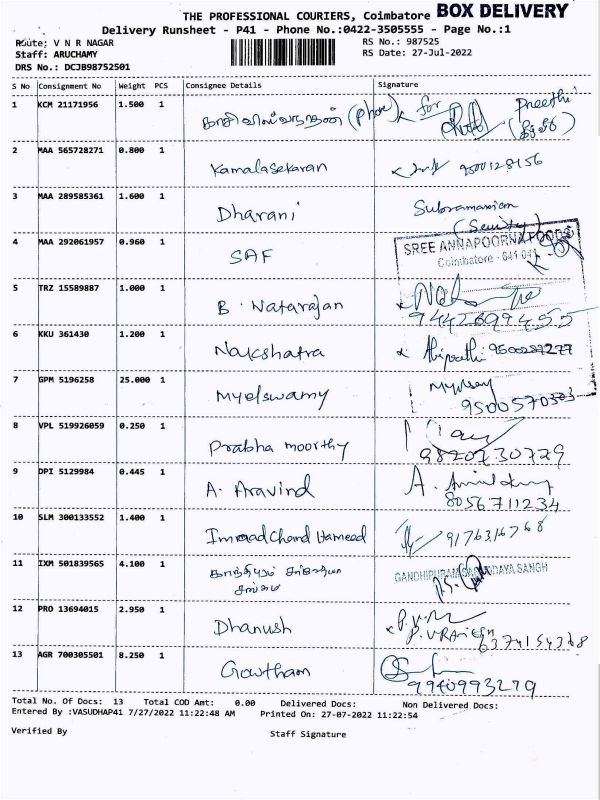 THE PROFESSIONAL COURIERS, Coimbatore BOX DELIVERY
Delivery Runsheet - P41 - Phone No.:0422-3505555 - Page No.:1
Route; V N R NAGAR
Staff: ARUCHAMY
DRS No.: DCJB98752501
RS No.: 987525
RS Date: 27-Jul-2022
S No Consignment No Weight PCS Consignee Details Signature
1 KCM 21171956 1.500 1 காசிவிஸ்வநாதன் (Phone) for Preethi
2 MAA 565728271 0.800 1 Kamalasekaran 9500128156
3 MAA 289585361 1.600 1 Dharani Subramaniam
(Security)
4 MAA 292061957 0.960 1 SAF SREE ANNAPOORNA FOODS
Coimbatore - 641 041
5 TRZ 15589887 1.000 1 B. Natarajan
9442699455
6 KKU 361430 1.200 1 Nakshatra 9500287277
7 GPM 5196258 25.000 1 Myelswamy
9500570303
8 VPL 519926059 0.250 1 Prabha moorthy
9820230729
9 DPI 5129984 0.445 1 A. Aravind A.
8056711234
10 SLM 300133552 1.400 1 Immad Chand Hameed 9176316768
11 IXM 501839565 4.100 1 காந்திபுரம் சர்வோதயா
சங்கம்
GANDHIPURAM SARVODAYA SANGH
12 PRO 13694015 2.950 1 Dhanush P.V.R
P.V RAMESH
6374154368
13 AGR 700305501 8.250 1 Gowtham
9940993279
Total No. Of Docs: 13 Total COD Amt: 0.00 Delivered Docs: Non Delivered Docs:
Entered By :VASUDHAP41 7/27/2022 11:22:48 AM Printed On: 27-07-2022 11:22:54
Verified By Staff Signature